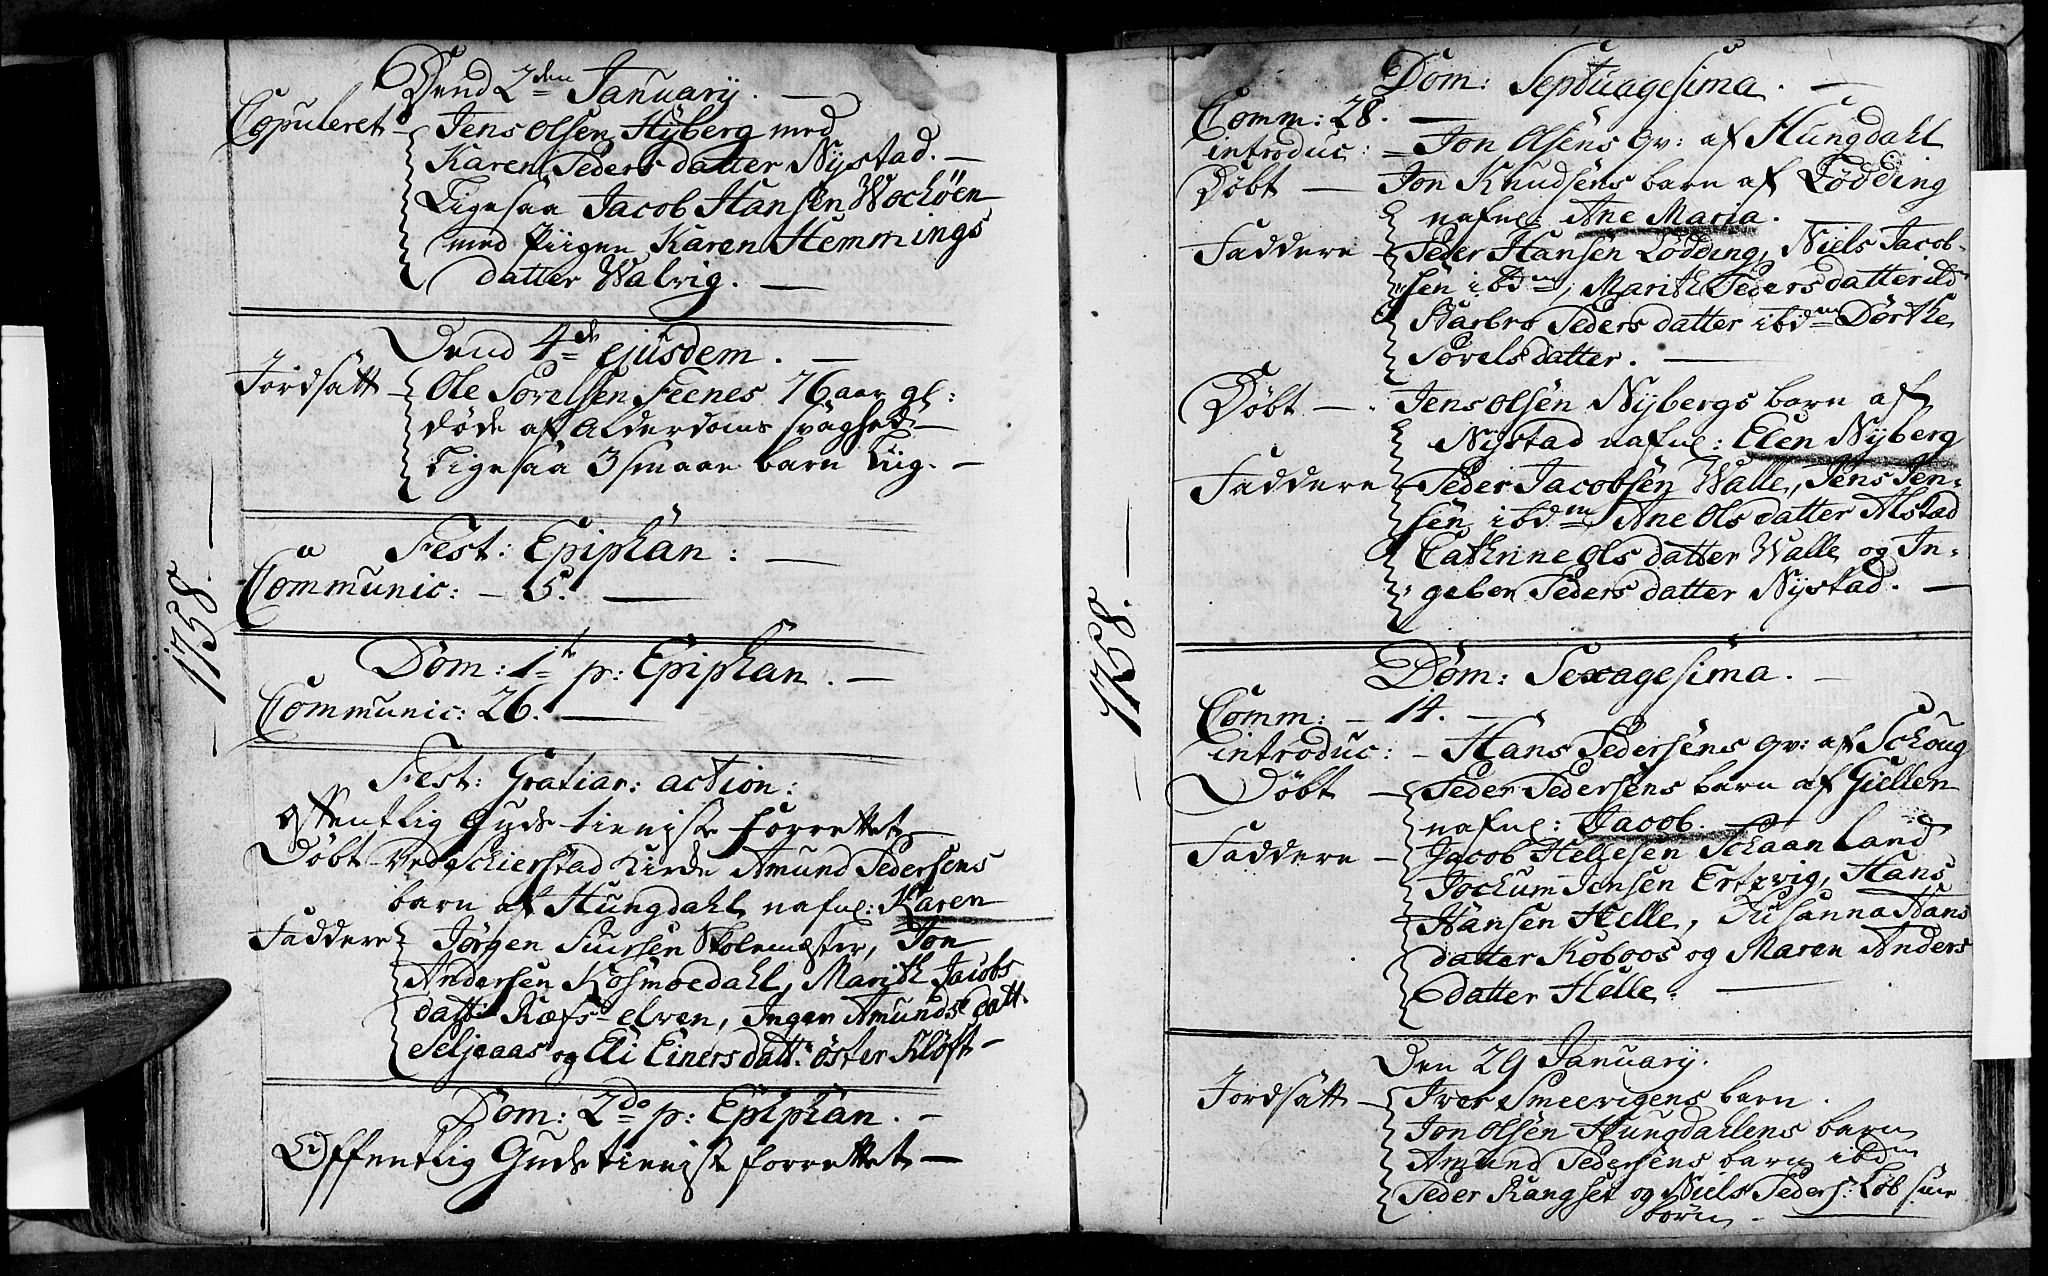 1758.
Dend 2den January.
Copuleret Jens Olsen Nÿberg med
Karen Peders datter Nÿstad.
Ligesaa Jacob Hansen Wochöen
med Piigen Karen Hemmings
datter Walvig.
Dend 4de ejusdem.
Jordsatt Ole Sorelsen Feenes 76 aar gl:
døde af Alderdoms svaghed
Ligesaa 3 smaae barn Liig.
Fest: Epiphan:
Communic: 5.
Dom: 1te p: Epiphan.
Communic: 26.
Fest: Gratiar: action:
Offentlig Guds tieniste forrettet
Døbt Ved Schierstad Kirche Amund Pedersens
barn af Hungdahl nafnl: Karen
Faddere Jørgen Siursen Skolemester, Jon
Andersen Kosmoedahl, Marith Jacobs
datt: Ræfs-elven, Inger Amunds datt.
Seljeaas og Eli Einers datt: öster Kløft
Dom: 2do p: Epiphan.
Offentlig Guds tieniste forrettet
1758.
Dom: Septuagesima.
Comm: 28.
introduc: Jon Olsens qv: af Hungdahl
Døbt Jon Knudsens barn af Lødding
nafnl: Ane Maria.
Faddere Peder Hansen Lødding, Niels Jacob-
sen ibdm, Marith Peders datter ibdm
Barbro Peders datter ibdm Dorthe
Sorels datter.
Døbt Jens Olsen Nÿbergs barn af
Nÿstad nafnl: Elen Nÿberg
Faddere Peder Jacobsen Walle, Jens Jen-
sen ibdm Ane Ols datter Alstad
Cathrine Ols datter Walle og In-
geber Peders datter Nÿstad.
Dom: Sexagesima.
Comm: 14.
introduc: Hans Pedersens qv: af Schoug
Døbt Peder Pedersens barn af Giellen
nafnl: Jacob.
Faddere Jacob Helgesen Schaanland
Jochum Jensen Ertzvig, Hans
Hansen Helle, Susanna Hans
datter Koboos og Maren Anders
datter Helle.
Den 29 January.
Jordsatt Iver Smeevigens barn.
Jon Olsen Hungdahlens barn
Amund Pedersens barn ibdm
Peder Rangset og Niels Peders: Löb
börn.